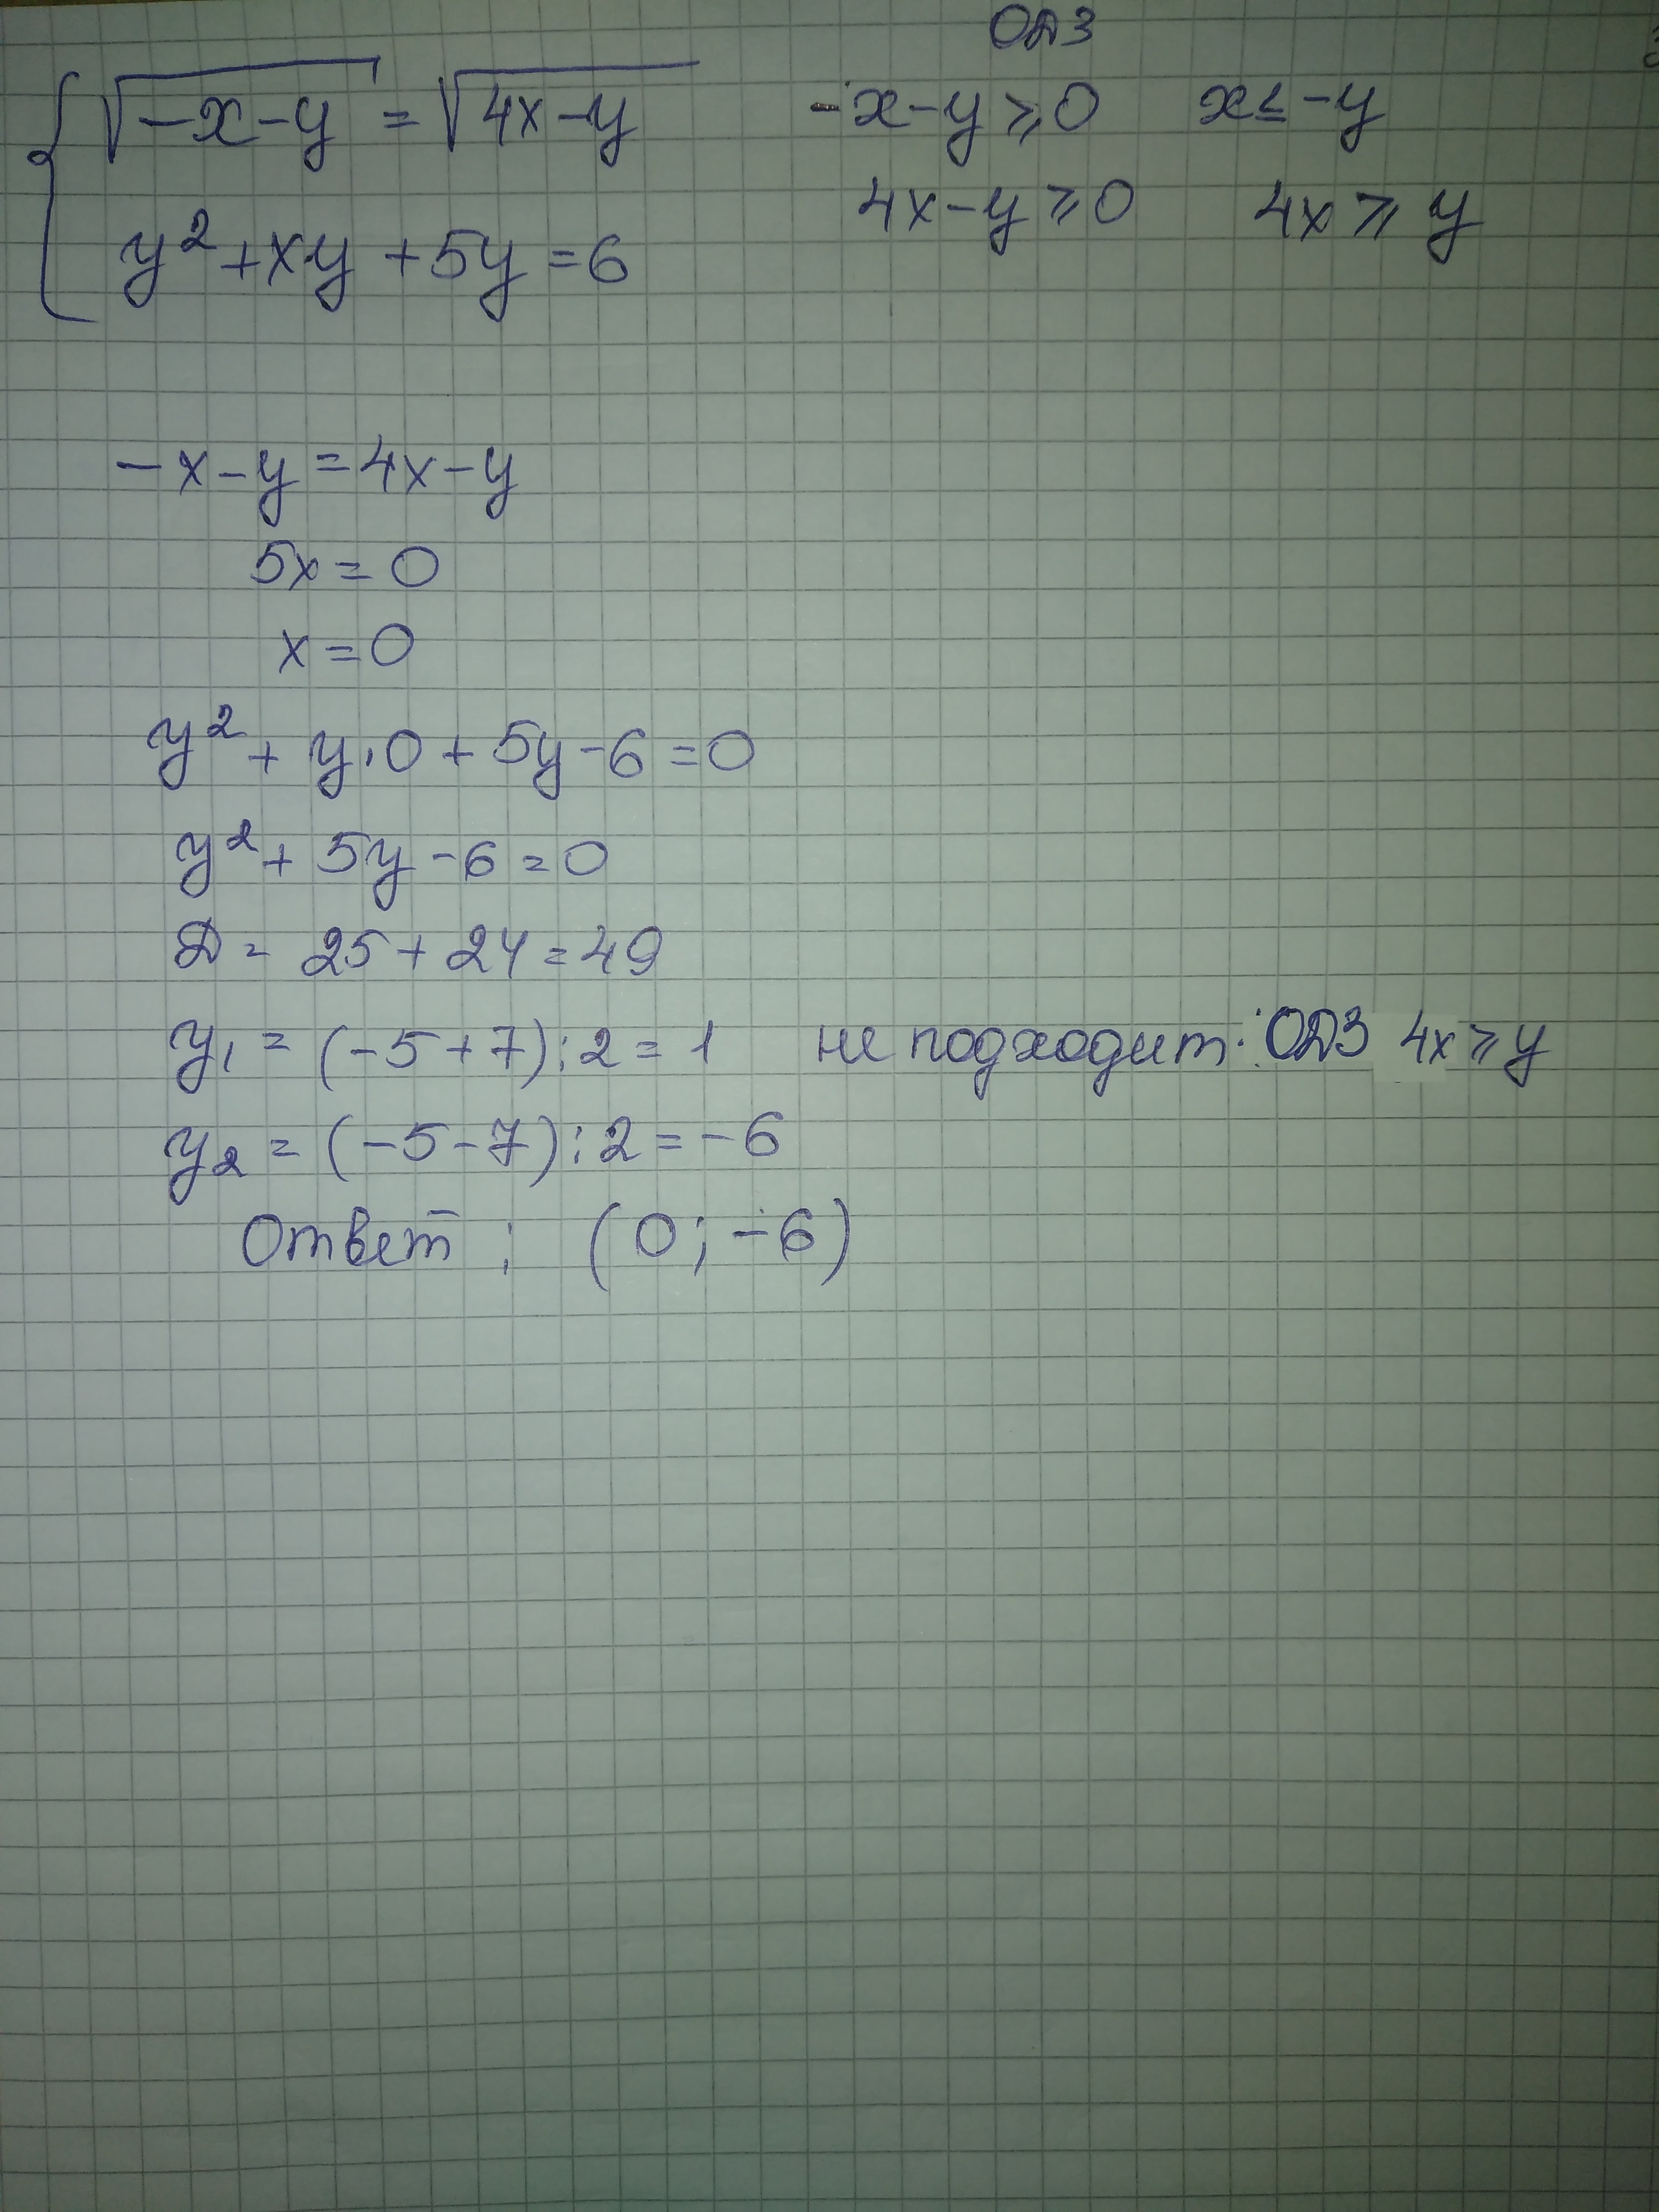 ОДЗ
√-x-y = √4x-y -x-y ≥ 0 x ≤ -y
4x-y ≥ 0 4x ≥ y
y²+xy+5y=6
-x-y=4x-y
5x=0
x=0
y²+y·0+5y-6=0
y²+5y-6=0
Д= 25+24=49
y₁ = (-5+7):2=1 не подходит: ОДЗ 4x ≥ y
y₂ = (-5-7):2=-6
Ответ: (0;-6)